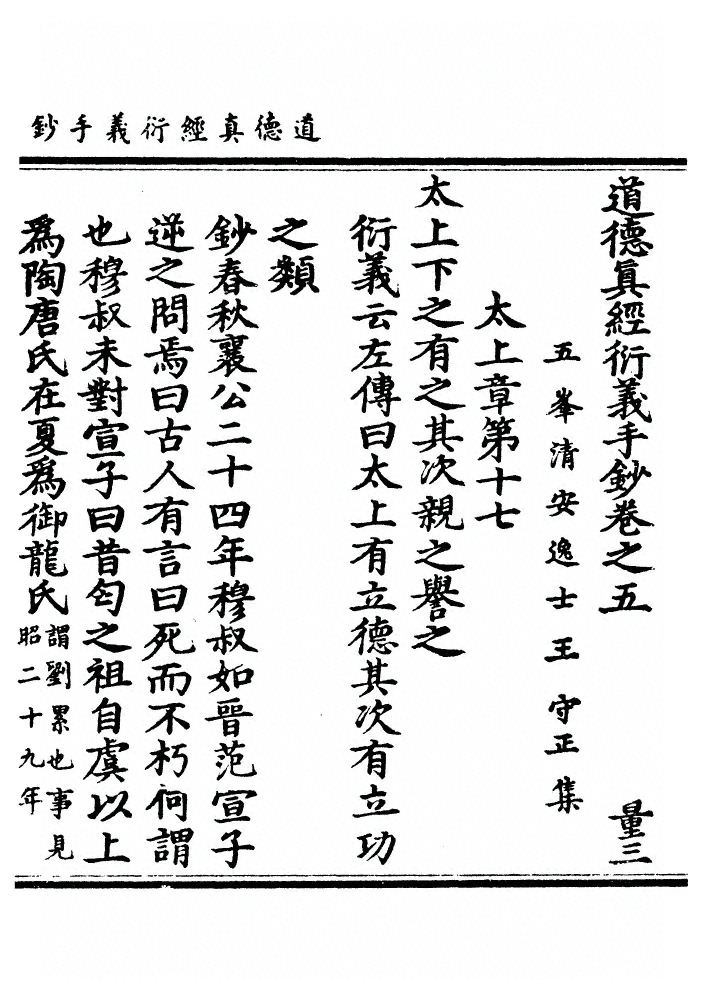 道德真經衍義手鈔
道德眞經衍義手鈔卷之五 量三
五峯清安逸士王守正集
太上章第十七
太上下之有之其次親之譽之
衍義云左傳曰太上有立德其次有立功
之類
鈔春秋襄公二十四年穆叔如晉范宣子
逆之問焉曰古人有言曰死而不朽何謂
也穆叔未對宣子曰昔匄之祖自虞以上
爲陶唐氏在夏爲御龍氏謂劉累也事見昭二十九年